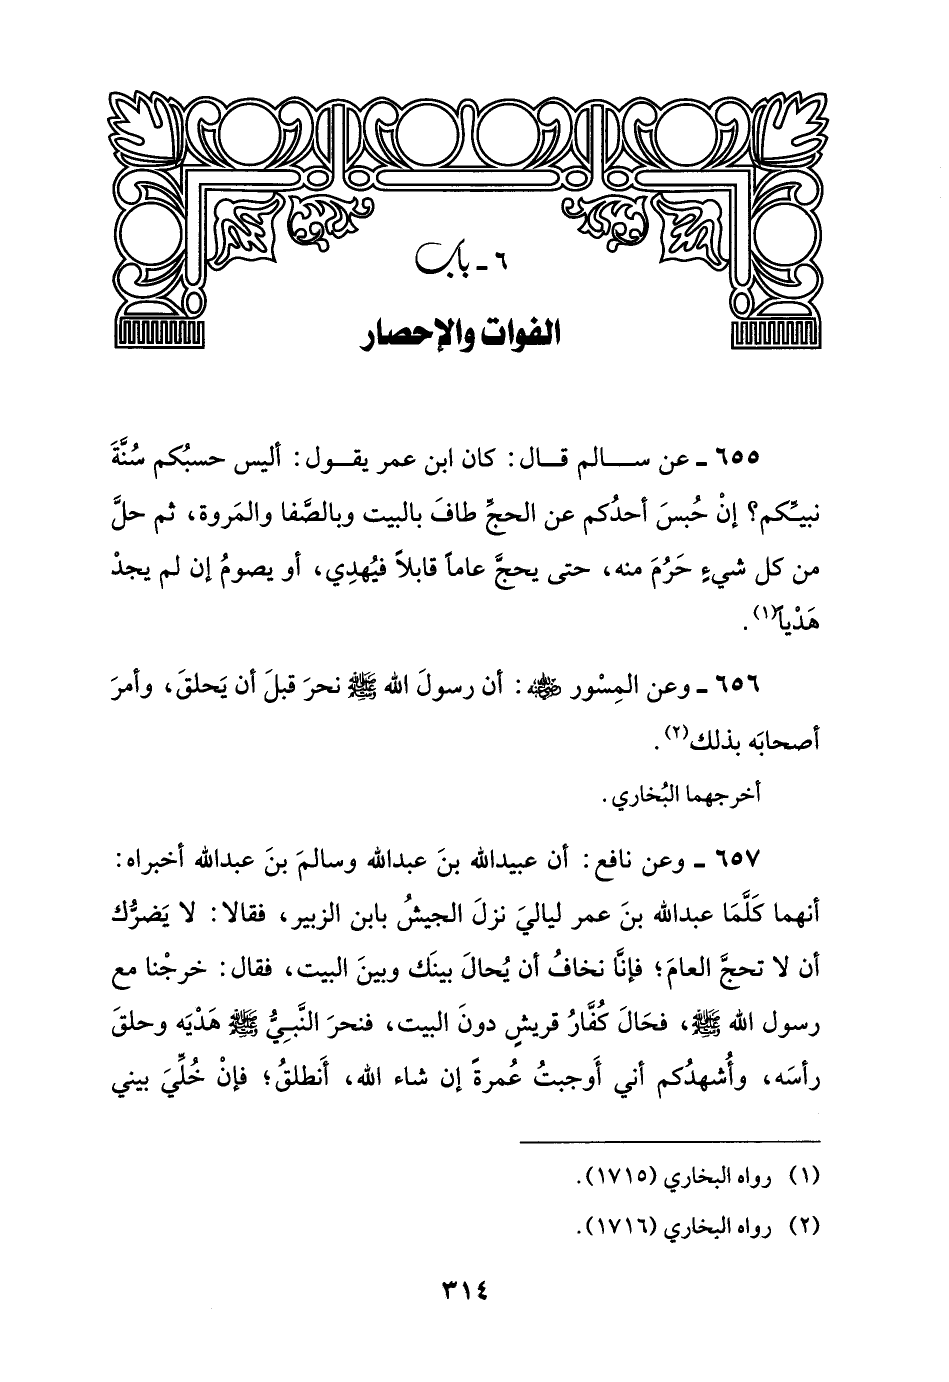 ٦ - باب
الفوات والإحصار
٦٥٥ ـ عن سـالم قـال: كان ابن عمر يقـول: أليس حسبُكم سُنَّةَ
نبيِّكم؟ إنْ حُبسَ أحدُكم عن الحجِّ طافَ بالبيت وبالصَّفا والمَروة، ثم حلَّ
من كل شيءٍ حَرُمَ منه، حتى يحجَّ عاماً قابلاً فيُهدِي، أو يصومُ إن لم يجدْ
هَدْياً(١).
٦٥٦ ـ وعن المِسْور ﵁: أن رسولَ الله ﷺ نحرَ قبلَ أن يَحلقَ، وأمرَ
أصحابَه بذلك(٢).
أخرجهما البُخاري.
٦٥٧ ـ وعن نافع: أن عبيدالله بنَ عبدالله وسالمَ بنَ عبدالله أخبراه:
أنهما كَلَّمَا عبدالله بنَ عمر لياليَ نزلَ الجيشُ بابن الزبير، فقالا: لا يَضرُّك
أن لا تحجَّ العامَ؛ فإنَّا نخافُ أن يُحالَ بينَك وبينَ البيت، فقال: خرجْنا مع
رسول الله ﷺ، فحَالَ كُفَّارُ قريشٍ دونَ البيت، فنحرَ النَّبيُّ ﷺ هَدْيَه وحلقَ
رأسَه، وأُشهدُكم أني أَوجبتُ عُمرةً إن شاء الله، أَنطلقُ؛ فإنْ خُلِّيَ بيني
(١) رواه البخاري (١٧١٥).
(٢) رواه البخاري (١٧١٦).
٣١٤